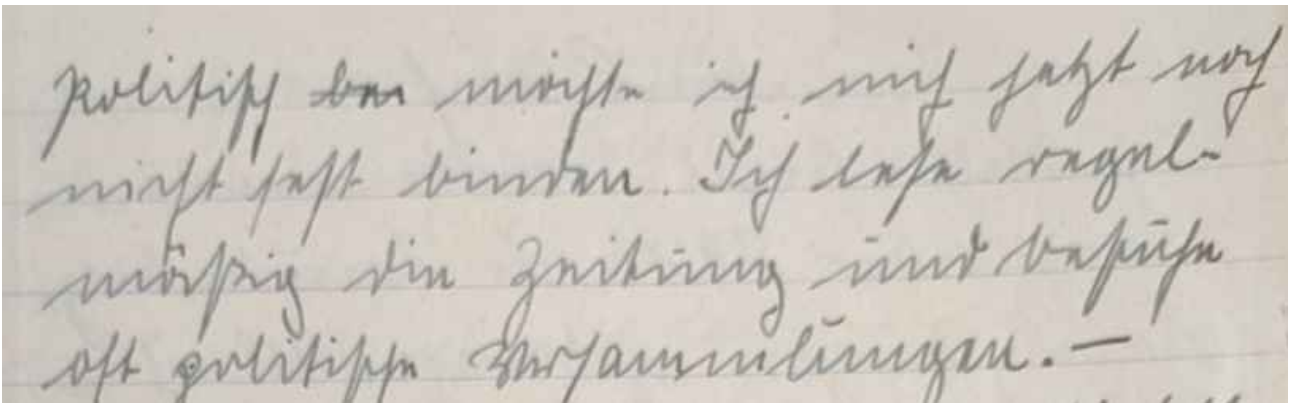 Politisch möchte ich mich jetzt noch
nicht fest binden. Ich lese regel-
mäßig die Zeitung und besuche
oft politische Versammlungen. —